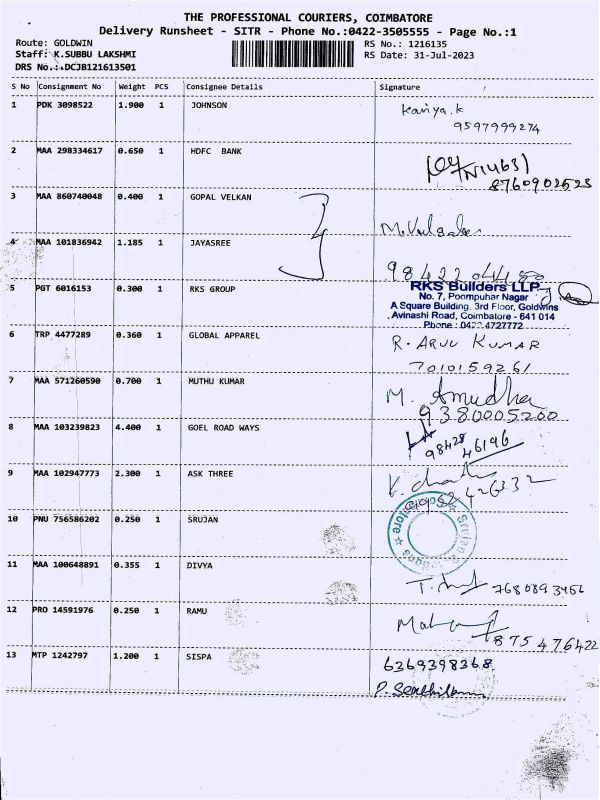 THE PROFESSIONAL COURIERS, COIMBATORE
Delivery Runsheet - SITR - Phone No.:0422-3505555 - Page No.:1
Route: GOLDWIN RS No.: 1216135
Staff: K.SUBBU LAKSHMI RS Date: 31-Jul-2023
DRS No.: DCJB121613501
S No Consignment No Weight PCS Consignee Details Signature
1 PDK 3098522 1.900 1 JOHNSON
9597999274
2 MAA 298334617 0.650 1 HDFC BANK
8760902523
3 MAA 860740048 0.400 1 GOPAL VELKAN
4 MAA 101836942 1.185 1 JAYASREE
5 PGT 6016153 0.300 1 RKS GROUP
RKS Builders LLP
No. 7, Poompuhar Nagar
A Square Building, 3rd Floor, Goldwins
Avinashi Road, Coimbatore - 641 014
Phone : 0422 4727772
6 TRP 4477289 0.360 1 GLOBAL APPAREL
R. ARUL KUMAR
7010159261
7 MAA 571260590 0.700 1 MUTHU KUMAR
M. Amudha
9380005200
8 MAA 103239823 4.400 1 GOEL ROAD WAYS
98428
46196
9 MAA 102947773 2.300 1 ASK THREE
10 PNU 756586202 0.250 1 SRUJAN
11 MAA 100648891 0.355 1 DIVYA
12 PRO 14591976 0.250 1 RAMU
875476422
13 MTP 1242797 1.200 1 SISPA
6369398368